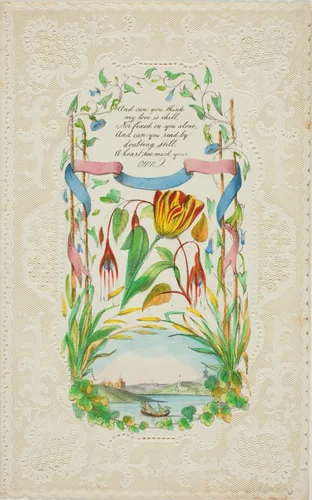 And can you think
my love is chill,
Nor fixed on you alone,
And can you rend by
doubting still,
A heart too much your
own!